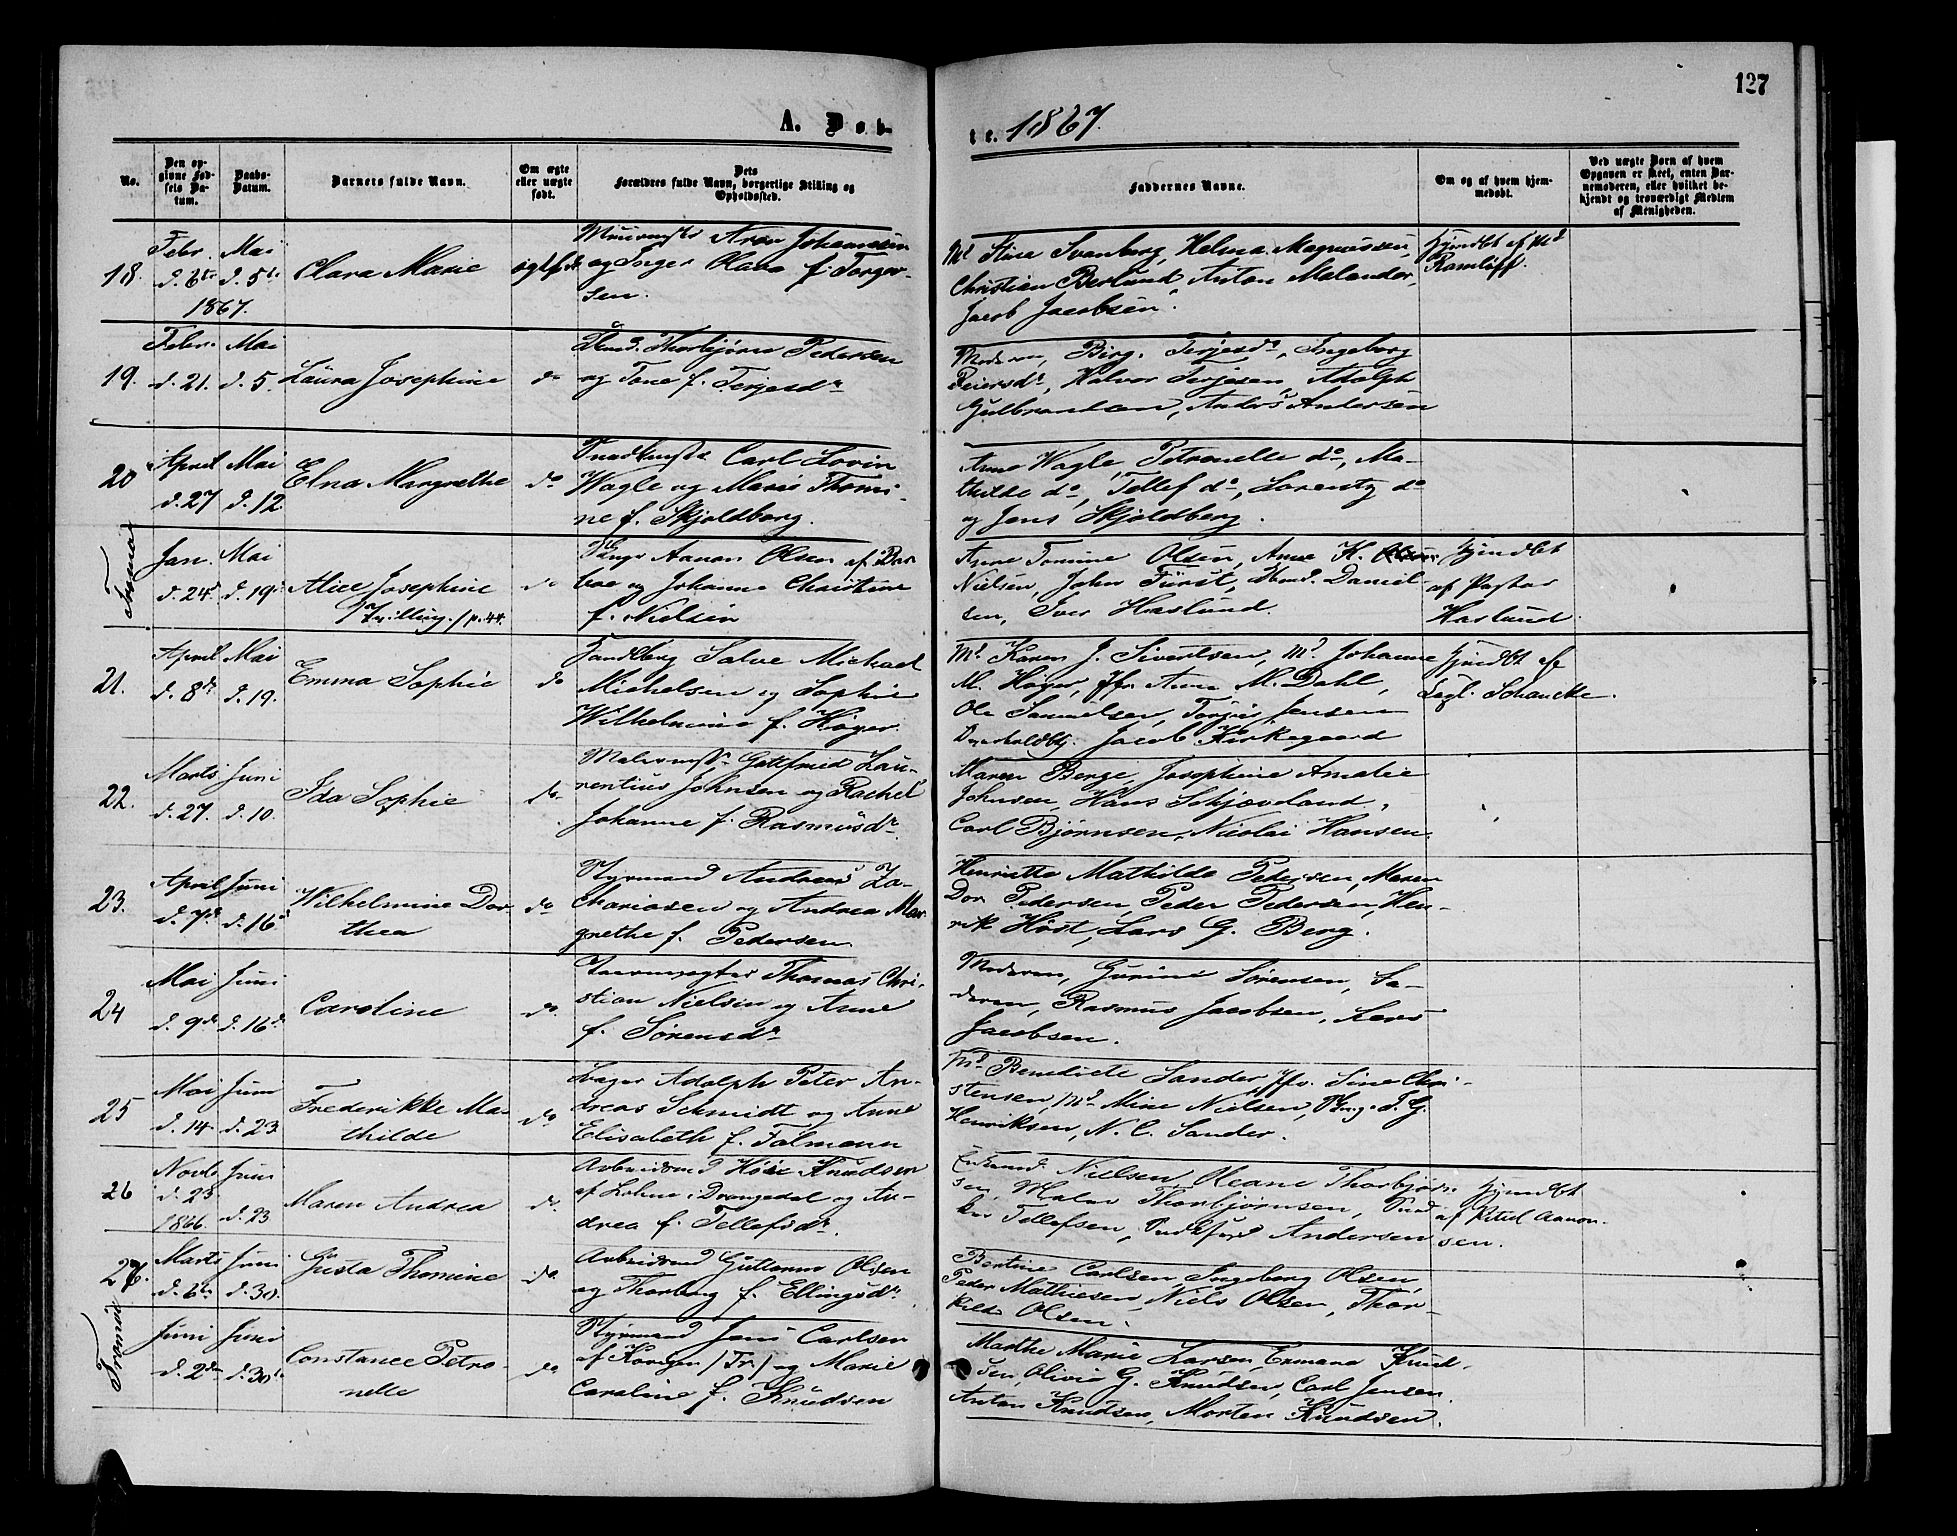 127
A. Døb-
te. 1867.
No.
Den opgivne Fødsels Datum.
Daabs-Datum.
Barnets fulde Navn.
Om ægte eller uægte født.
Dets Forældres fulde Navn, borgerlige Stilling og Opholdssted.
Faddernes Navne.
Om og af hvem hjemmedøbt.
Ved uægte Børn af hvem Opgaven er skeet, enten Barnemoderen, eller hvilket bekjendt og troværdigt Medlem af Menigheden.
18.
Febr. d. 6te 1867.
Mai d. 5te
Clara Marie
Aron Johannesen
og Inger Olava f. Torger-
sen.
Md Stine Svanberg, Helma Magnussen,
Christian Berlund, Anton Malander,
Jacob Jacobsen.
Hjmdbt af Md
Ramløff.
19.
Febr. d. 21.
Mai d. 5.
Laura Josephine
do
Thorbjørn Pedersen
og Tone f. Terjesdr
Moderen, Birg. Terjesdr, Ingeborg
Peiersdr, Halvor Terjesen, Adolph
Gulbrandsen, Anders Andersen
20
April d. 27
Mai d. 12.
Elna Margrethe
do
Carl Lovin
Wagle og Maren Thomi-
ne f. Skjoldborg.
Anne Wagle, Petronelle do, Ma-
thilde do, Tellef do, Lorentz do
og Jens Skjoldberg.
Tromø
Jan. d. 24.
Mai d. 19.
Alice Josephine
/Tvilling./ p. 44.
do
Aanon Olsen af Bar-
boe og Johanne Christine
f. Nielsen
Anne Tomine Olsen, Anne K.
Nielsen, John Fürst, Daniel-
sen, Iver Haslund.
Hjmdbt
af Pastor
Haslund.
21.
April d. 8de
Mai d. 19.
Emma Sophie
do
Salve Michael
Michelsen og Sophie
Wilhelmine f. Høyer.
Md Karen J. Sivertsen, Md Johanne
M. Høyer, Jfr. Anne M. Dahl,
Ole Samuelsen, Torjus Jensen
Jacob Kirkegaard
Hjmdbt af
Schancke.
22.
Marts d. 27.
Juni d. 10.
Ida Sophie
do.
Malermstr Gottfried Lau-
rentius Johnsen og Rachel
Johanne f. Rasmusdr.
Maren Berge, Josephine Amalie
Johnsen, Hans Skjæveland,
Carl Bjørnsen, Nicolai Hansen.
23.
April d. 7de
Juni d. 16
Wilhelmine Dor-
thea
do
Styrmand Andreas Za-
chariasen og Andrea Mar-
grethe f. Pedersen.
Henriette Mathilde Petersen, Maren
Dor. Pedersen, Peder Pedersen, Hen-
rik Høst, Lars G. Berg.
24
Mai d. 9de
Juni d. 16de
Caroline
do.
Taarnvægter Thomas Chri-
stian Nielsen og Anne
f. Sørensdr
Moderen, Gurine Sørensen, Fa-
deren, Rasmus Jacobsen, Lars
Jacobsen.
25
Mai d. 14
Juni d. 23.
Frederikke Ma-
thilde
do
Adolph Peter An-
dreas Schmidt og Anne
Elisabeth f. Falmann
Md Benedicte Sander, Jfr. Sine Chri-
stensen, Md Mine Nielsen, T. G.
Henriksen, N. C. Sander.
26
Novb. d. 23 1866.
Juni d. 23
Maren Andrea
do.
Arbeidsmd Knudsen
af Lohne i Drangedal og An-
drea f. Tellefsdr.
Nielsen, Oleane Thorbjørn-
sen, Thorbjørnsen,
Tellefsen, Andersen
Hjmdbt
af Kitil Aanon-
sen.
27.
Marts d. 6te
Juni d. 30.
Gusta Thomine
do.
Arbeidsmd Guttorm Olsen
og Thorborg f. Ellingsdr.
Bertine Carlsen, Ingeborg Olsen,
Peder Mathiesen, Niels Olsen, Thor-
kild Olsen.
Tromø
Juni d. 2den
Juni d. 30te
Constance Petro-
nelle
do
Styrmand Jens Carlsen
af Kongen /Tr./ og Marie
Caroline f. Knudsen
Marthe Marie Larsen, Knud-
sen, Olivia G. Knudsen, Carl Jensen,
Anton Knudsen, Morten Knudsen.